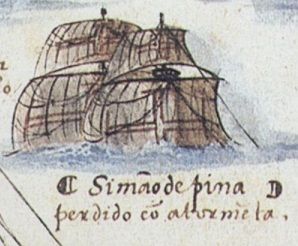 ¶ Simão de pina
perdido cõ a tormẽta.